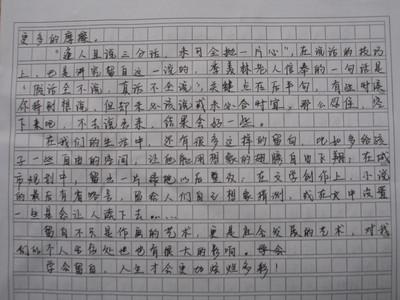 更多的摩擦。
“逢人且说三分话，未可全抛一片心”，在说话的技巧
上，也是讲究留白这一说的，季羡林先人信奉的一句话是
“假话全不说，真话不全说”，关键点在后半句，有些时候
你特别想说，但却未必该说或未必合时宜，那么停住，忍
下来吧，不去说出来，结果会好一些。
在我们的生活中，还有很多这样的留白，比如多给孩
子一些自由的空间，让他能用想象的翅膀自由飞翔；在城
市规划中，留出一片绿地以后整改；在文学创作上，小说
的最后有省略号，留给人们自己想象猜测，我在文中设置
一些是会让人读下去……
留白不只是作画的艺术，更是社会发展的艺术，对我
们的个人为人处也也有很大的影响。
学会留白，人生才会更加炫烂多彩！